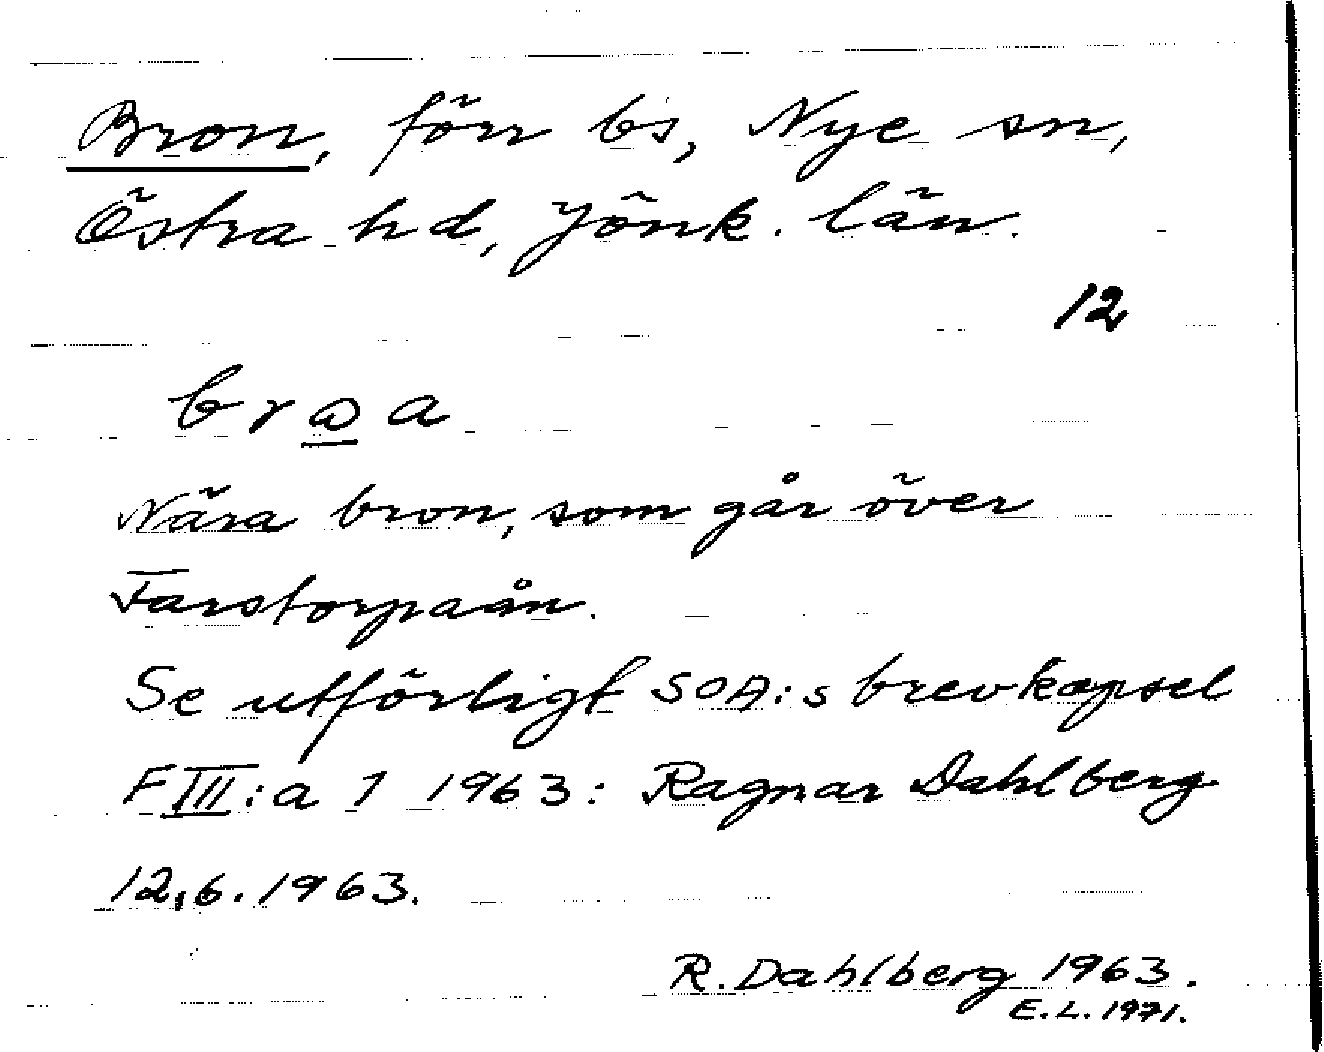 Bron, förr bs, Nye sn,
Östra hd, Jönk. län.
12
bra
Nära bron, som går över
Farstorpaån.
Se utförligt SOA:s brevkapsel
F III:a 1 1963: Ragnar Dahlberg
12.6.1963.
R. Dahlberg 1963.
E.L. 1971.